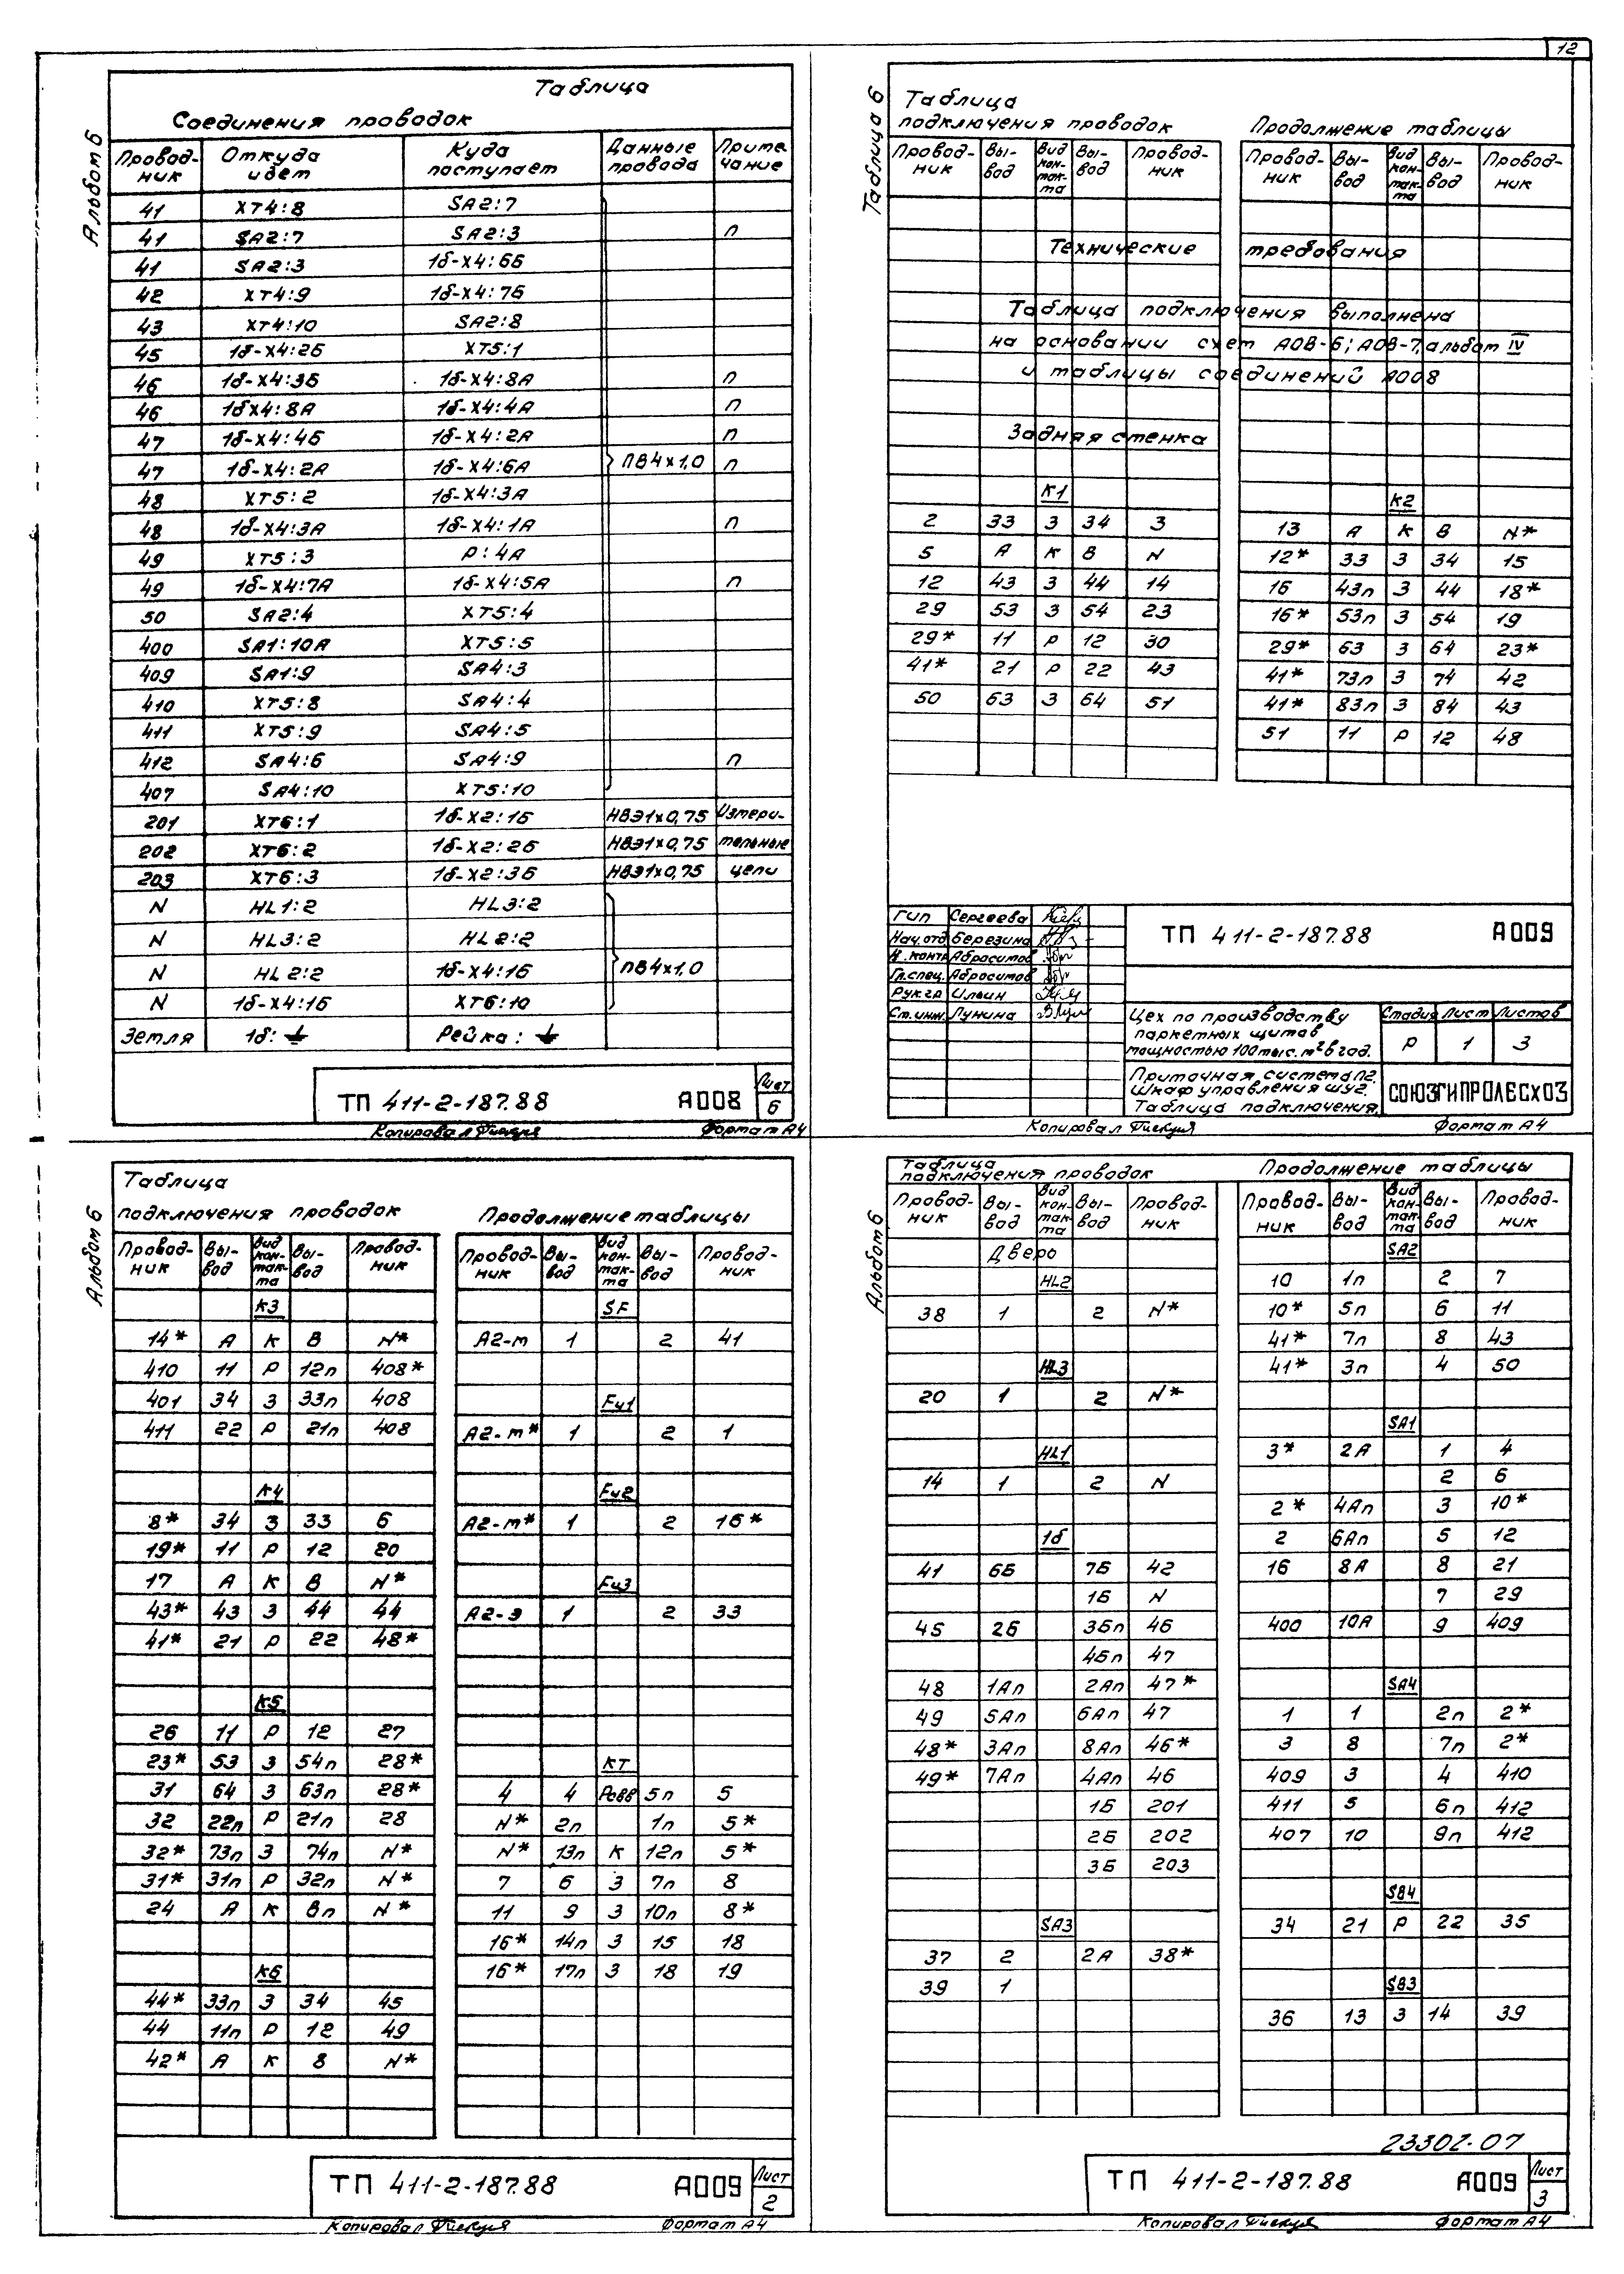 12
Альбом 6
Таблица
Соединения проводок
Провод-ник Откуда идет Куда поступает Данные провода Приме чание
41 XT4:8 SA2:7
41 SA2:7 SA2:3 п
41 SA2:3 1б-X4:6Б
42 XT4:9 1б-X4:7Б
43 XT4:10 SA2:8
45 1б-X4:2Б XT5:1
46 1б-X4:3Б 1б-X4:8А п
46 1бX4:8А 1б-X4:4А п
47 1б-X4:4Б 1б-X4:2А п
47 1б-X4:2А 1б-X4:6А ПВ4х1,0 п
48 XT5:2 1б-X4:3А
48 1б-X4:3А 1б-X4:1А п
49 XT5:3 Р:4А
49 1б-X4:7А 1б-X4:5А п
50 SA2:4 XT5:4
400 SA1:10А XT5:5
409 SA1:9 SA4:3
410 XT5:8 SA4:4
411 XT5:9 SA4:5
412 SA4:6 SA4:9 п
407 SA4:10 XT5:10
201 XT6:1 1б-X2:1Б НВЭ1х0,75 Измери-
202 XT6:2 1б-X2:2Б НВЭ1х0,75 тельные
203 XT6:3 1б-X2:3Б НВЭ1х0,75 цепи
N HL1:2 HL3:2
N HL3:2 HL2:2
N HL2:2 1б-X4:1Б ПВ4х1,0
N 1б-X4:1Б XT6:10
Земля 1б: ⏚ Рейка: ⏚
ТП 411-2-187.88 А008 Лист 6
Копировал Формат А4
Таблица 6
Таблица
подключения проводок Продолжение таблицы
Провод-ник Вы-вод Вид кон-так-та Вы-вод Провод-ник Провод-ник Вы-вод Вид кон-так-та Вы-вод Провод-ник
Технические требования
Таблица подключения выполнена
на основании схем АОВ-6; АОВ-7, альбом IV
и таблицы соединений А008
Задняя стенка
К1
2 33 З 34 3
5 А К В N
12 43 З 44 14
29 53 З 54 23
29* 11 Р 12 30
41* 21 Р 22 43
50 63 З 64 51
К2
13 А К В N*
12* 33 З 34 15
16 43п З 44 18*
16* 53п З 54 19
29* 63 З 64 23*
41* 73п З 74 42
41* 83п З 84 43
51 11 Р 12 48
ГИП Сергеева
Нач.отд Березина
Н.контр Абросимов
Гл.спец. Абросимов
Рук.гр Ильин
Ст.инж. Лунина
ТП 411-2-187.88 А009
Цех по производству паркетных щитов мощностью 100 тыс. м² в год.
Стадия Лист Листов
Р 1 3
Приточная система П2. Шкаф управления ШУ2. Таблица подключения.
СОЮЗГИПРОЛЕСХОЗ
Копировал Формат А4
Альбом 6
Таблица
подключения проводок Продолжение таблицы
Провод-ник Вы-вод Вид кон-так-та Вы-вод Провод-ник Провод-ник Вы-вод Вид кон-так-та Вы-вод Провод-ник
К3
14* А К В N*
410 11 Р 12п 408*
401 34 З 33п 408
411 22 Р 21п 408
К4
8* 34 З 33 6
19* 11 Р 12 20
17 А К В N*
43* 43 З 44 44
41* 21 Р 22 48*
К5
26 11 Р 12 27
23* 53 З 54п 28*
31 64 З 63п 28*
32 22п Р 21п 28
32* 73п З 74п N*
31* 31п Р 32п N*
24 А К Вп N*
К6
44* 33п З 34 45
44 11п Р 12 49
42* А К В N*
SF
А2-т 1 2 41
Fu1
А2-т* 1 2 1
Fu2
А2-т* 1 2 16*
Fu3
А2-э 1 2 33
КТ
4 4 5п 5
N* 2п 1п 5*
N* 13п К 12п 5*
7 6 З 7п 8
11 9 З 10п 8*
16* 14п З 15 18
16* 17п З 18 19
ТП 411-2-187.88 А009 Лист 2
Копировал Формат А4
Альбом 6
Таблица
подключения проводок Продолжение таблицы
Провод-ник Вы-вод Вид кон-так-та Вы-вод Провод-ник Провод-ник Вы-вод Вид кон-так-та Вы-вод Провод-ник
Дверь
HL2
38 1 2 N*
HL3
20 1 2 N*
HL1
14 1 2 N
1б
41 6Б 7Б 42
1Б N
45 2Б 3Бп 46
4Бп 47
48 1Ап 2Ап 47*
49 5Ап 6Ап 47
48* 3Ап 8Ап 46*
49* 7Ап 4Ап 46
1Б 201
2Б 202
3Б 203
SA3
37 2 2А 38*
39 1
SA2
10 1п 2 7
10* 5п 6 11
41* 7п 8 43
41* 3п 4 50
SA1
3* 2А 1 4
2 6
2* 4Ап 3 10*
2 6Ап 5 12
16 8А 8 21
7 29
400 10А 9 409
SA4
1 1 2п 2*
3 8 7п 2*
409 3 4 410
411 5 6п 412
407 10 9п 412
SB4
34 21 Р 22 35
SB3
36 13 З 14 39
23302-07
ТП 411-2-187.88 А009 Лист 3
Копировал Формат А4